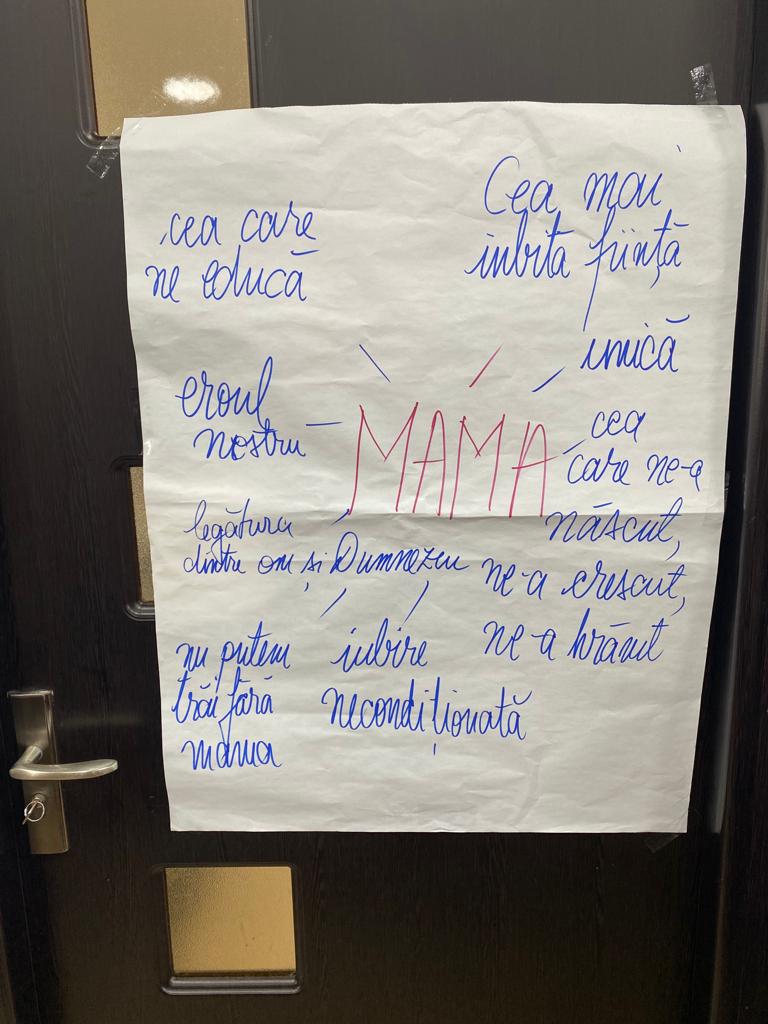 cea care
ne educă
Cea mai
iubita ființă
unică
eroul
nostru
MAMA
cea
care ne-a
născut,
ne-a crescut,
ne-a hrănit
legătura
dintre om și Dumnezeu
nu putem
trăi fără
mama
iubire
necondiționată